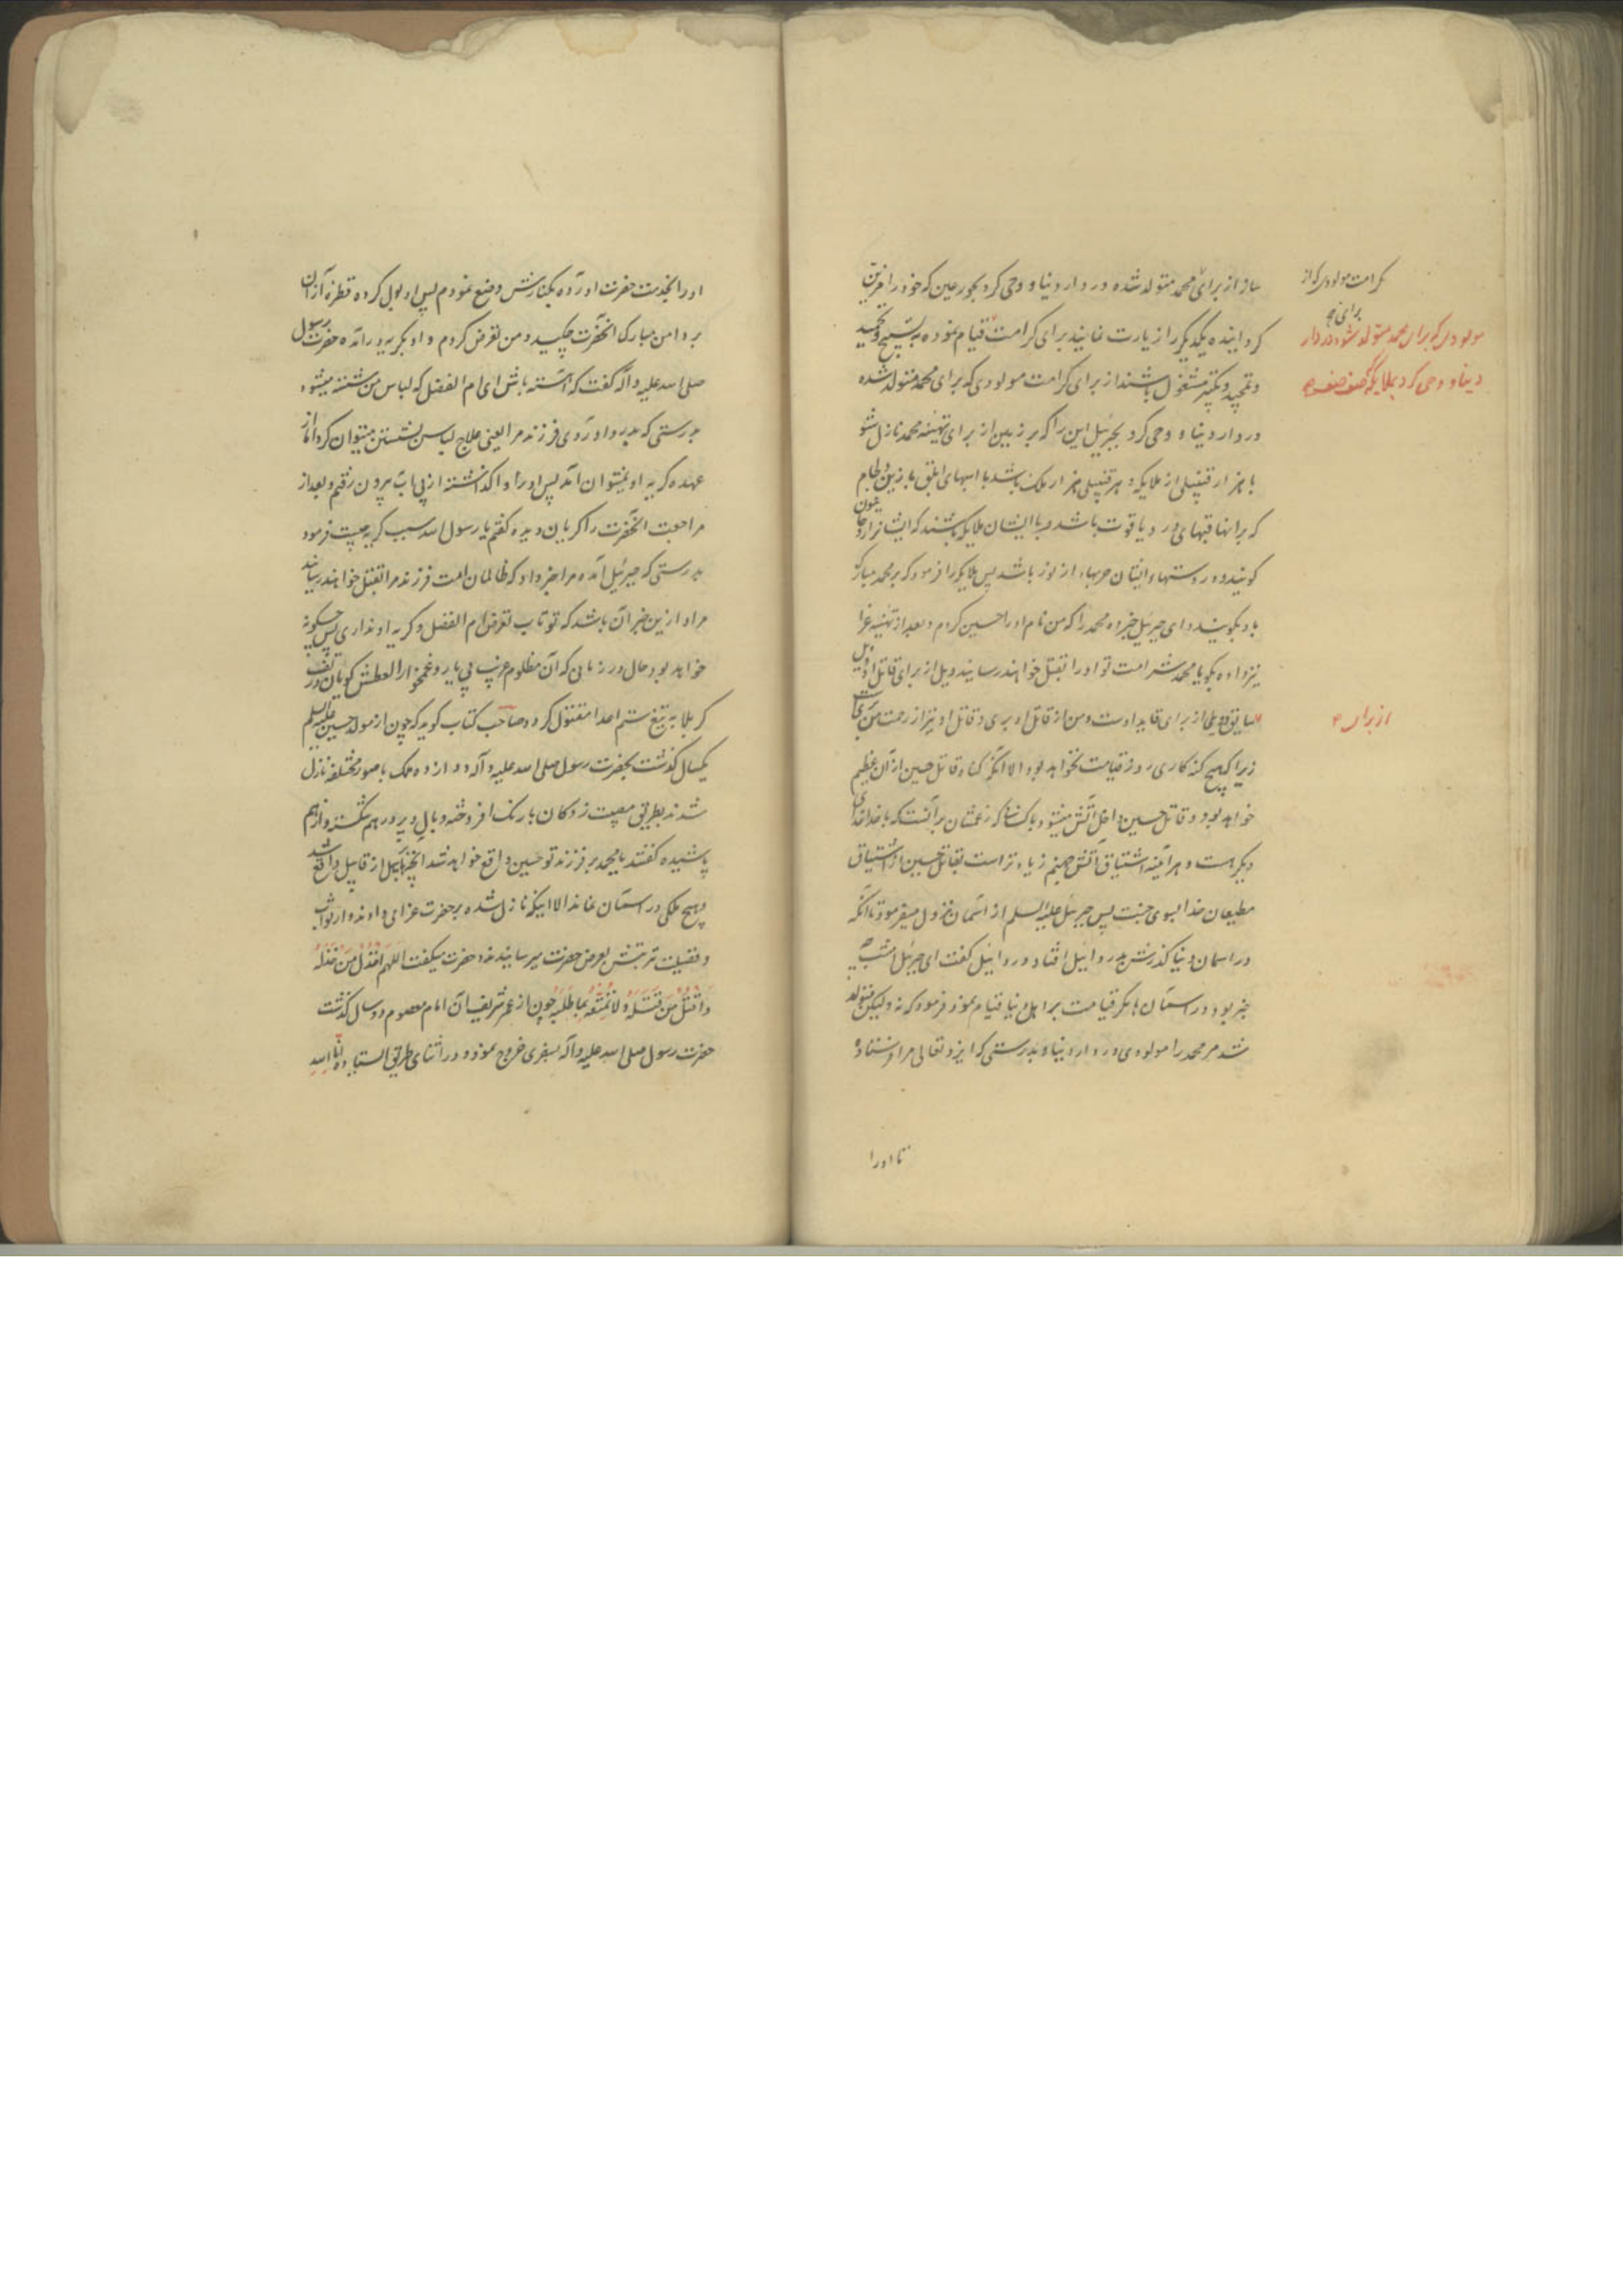 ساز از برای محمد متولد شده در دار دنیا و وحی کرد بحور عین که خود را مزین
کردانیده یکدیگر را زیارت نمایند برای کرامت قیام نموده به تسبیح و تحمید
و تمجید و تکبیر مشغول باشند از برای کرامت مولودی که برای محمد متولد شده
در دار دنیا و وحی کرد بجبرئیل این را که بر زمین از برای تهنیه محمد نازل شو
با هزار قنبیلی از ملایکه و هر قنبیلی هزار ملک باشد با اسبهای ابلق با زین و لجام
که بر انها قبهای در و یاقوت باشد و با ایشان ملایکه باشند که ایشانرا روحانیون
کویند و در دستهاء ایشان حربهاء از نور باشد پس ملایکه را فرمود که بر محمد مبارک
باد بکویند و ای جبرئیل خبر ده محمد را که من نام او را حسین کردم و بعد از تهنیه عزا
نیز داده بکو یا محمد شر امت تو او را بقتل خواهند رسانید ویل از برای قاتل او ویل
سایق ویل از برای قاید اوست و من از قاتل او بری و قاتل او نیز از رحمت من
زیرا که هیچ کنه کاری روز قیامت نخواهد بود الا آنکه کناه قاتل حسین از آن عظیم
خواهد بود و قاتل حسین داخل آتش میشود با کسانیکه زعمشان بر آنست که با خدا خدای
دیکر است و هر آینه اشتیاق آتش جهنم زیاده تر است بقاتل حسین از اشتیاق
مطیعان خدا بسوی جنت پس جبرئیل علیه السلم از آسمان نزول میفرمود تا آنکه
در اسمان دنیا کذرش بدردائیل افتاد و دردائیل کفت ای جبرئیل امشب چه
خبر بود در آسمان ها مکر قیامت بر اهل دنیا قیام نمود فرمود که نه و لیکن متولد
شد مر محمد را مولودی در دار دنیا و بدرستی که ایزد تعالی مرا فرستاده
تا او را
کرامت مولودی که از
برای محمد
مولودی که برای محمد متولد شده در دار
دنیا و وحی کرد بملایکه که صف صف
از برای
او را بخدمت حضرت اورده بکنارش وضع نمودم پس او بول کرده قطره از آن
بر دامن مبارک آنحضرت چکید و من تعرض کردم و او بکریه درامده حضرت رسول
صلی الله علیه و آله کفت که آهسته باش ای ام الفضل که لباس من شسته میشود
بدرستی که بدرد اوردی فرزند مرا یعنی علاج لباس بشستن میتوان کرد اما از
عهده کریه او نمیتوان آمد پس او را واکذاشته از پی اب بیرون رفتم و بعد از
مراجعت انحضرت را کریان دیده کفتم یا رسول الله سبب کریه چیست فرمود
بدرستی که جبرئیل آمده مرا خبر داد که ظالمان امت فرزند مرا بقتل خواهند رسانید
مراد از این خبر آن باشد که تو تاب تعرض ام الفضل و کریه او نداری پس چکونه
خواهد بود حال در زمانی که آن مظلوم غریب بی یار و غمخوار العطش کویان در تف
کربلا به تیغ ستم اعدا مقتول کردد صاحب کتاب کوید که چون از مولد حسین علیه السلم
یکسال کذشت بحضرت رسول صلی الله علیه و آله دوازده ملک با صور مختلفه نازل
شدند بطریق مصیبت زدکان با رنک افروخته و بال و پر درهم شکسته و از هم
پاشیده کفتند یا محمد بر فرزند تو حسین واقع خواهد شد آنچه بهابیل از قابیل واقع شد
و هیچ ملکی در آسمان نماند الا اینکه نازل شده بر حضرت عزای او داده و از ثواب
و فضیلت تربتش بعرض حضرت میرسانیدند و حضرت میکفت اللهم اخذل من خذله
و اقتل من قتله و لا تمتعه بما طلبه چون از عمر شریف آن امام معصوم دو سال کذشت
حضرت رسول صلی الله علیه و آله بسفری خروج نمود و در اثنای طریق ایستاده انا لله